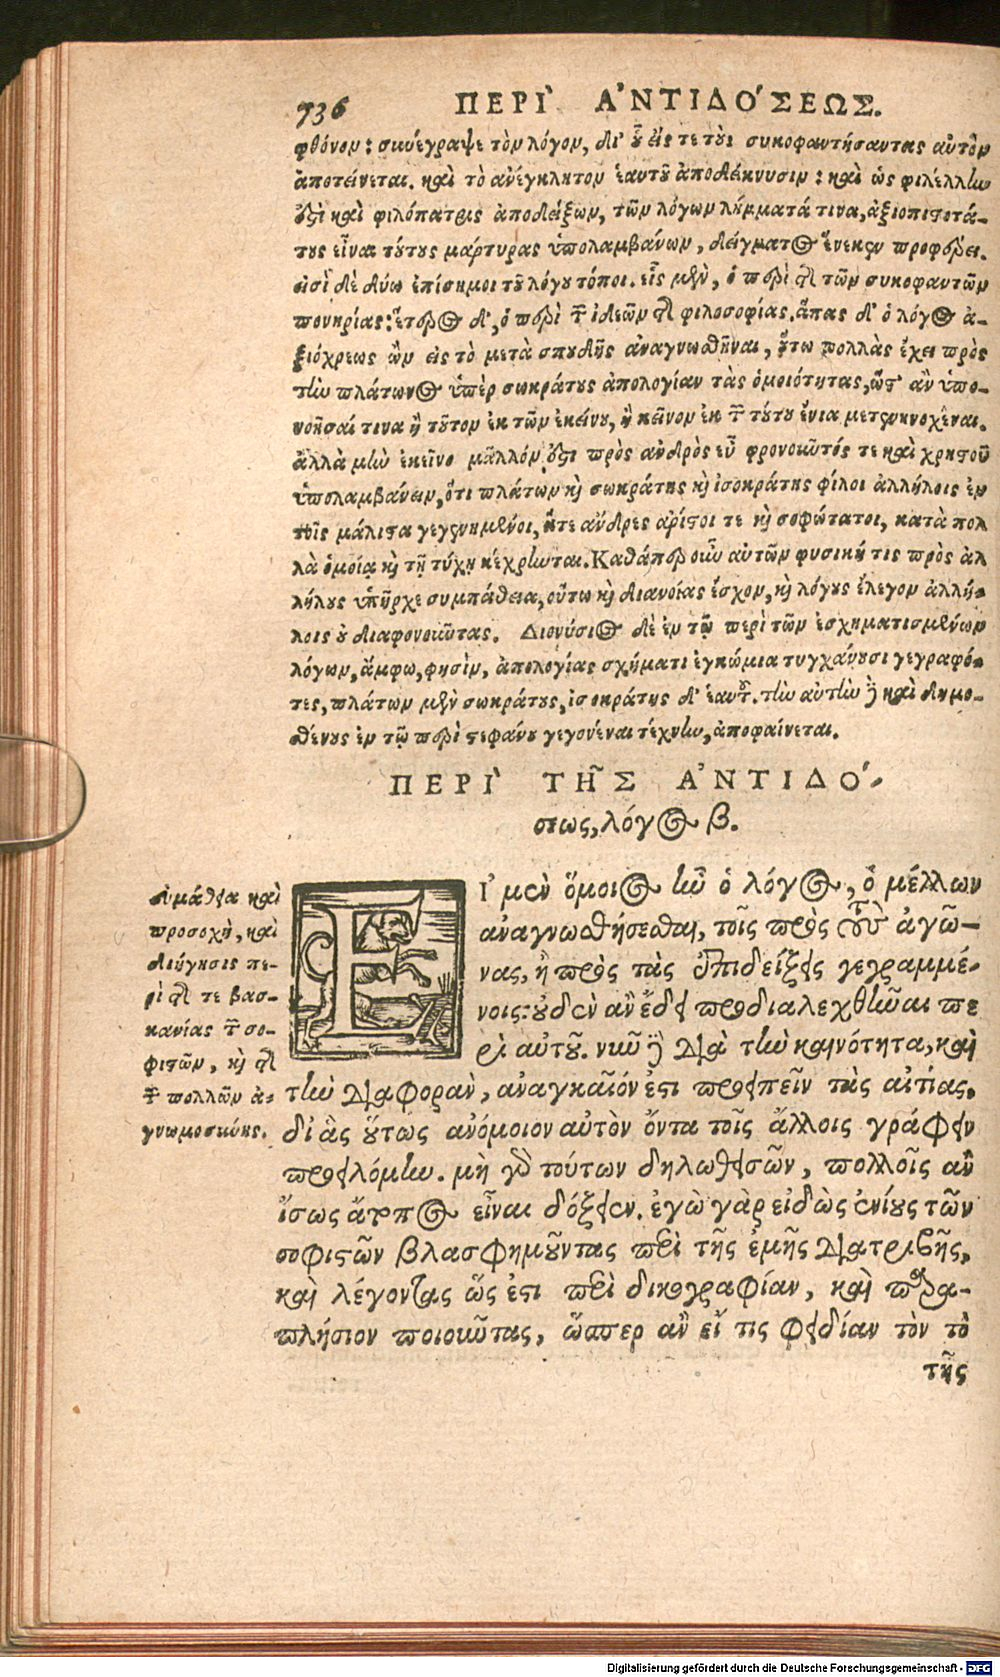 736 ΠΕΡῚ ἈΝΤΙΔΌΣΕΩΣ.
φθόνον: συνέγραψε τὸν λόγον, δι' οὗ εἴς τε τοὺς συκοφαντήσαντας αὐτὸν
ἀποτείνεται. καὶ τὸ ἀνέγκλητον ἑαυτοῦ ἀποδείκνυσιν: καὶ ὡς φιλέλλην
ἐστὶ καὶ φιλόπατρις ἀποδείξων, τῶν λόγων λήμματά τινα, ἀξιοπιστοτά-
τους εἶναι τούτους μάρτυρας ὑπολαμβάνων, δείγματος ἕνεκεν προφέρει.
εἰσὶ δὲ δύω ἐπίσημοι τοῦ λόγου τόποι. εἷς μὲν, ὁ περὶ τῆς τῶν συκοφαντῶν
πονηρίας: ἕτερος δ', ὁ περὶ τῶν ἰδεῶν τῆς φιλοσοφίας. ἅπας δ' ὁ λόγος ἀ-
ξιόχρεως ὢν εἰς τὸ μετὰ σπουδῆς ἀναγνωσθῆναι, οὕτω πολλὰς ἔχει πρὸς
τὴν πλάτωνος ὑπὲρ σωκράτους ἀπολογίαν τὰς ὁμοιότητας, ὥστ' ἂν ὑπο-
νοῆσαί τινα ἢ τοῦτον ἐκ τῶν ἐκείνου, ἢ κεῖνον ἐκ τῶν τούτου ἔνια μετενηνοχέναι.
ἀλλὰ μὴν ἐκεῖνο μᾶλλόν ἐστι πρὸς ἀνδρὸς εὖ φρονοῦντός τε καὶ χρηστοῦ
ὑπολαμβάνειν, ὅτι πλάτων καὶ σωκράτης καὶ ἰσοκράτης φίλοι ἀλλήλοις ἐν
τοῖς μάλιστα γεγενημένοι, ἅτε ἄνδρες ἄριστοί τε καὶ σοφώτατοι, κατὰ πολ
λὰ ὁμοίᾳ καὶ τῇ τύχῃ κέχρηνται. Καθάπερ οὖν αὐτῶν φυσική τις πρὸς ἀλ
λήλους ὑπῆρχε συμπάθεια, οὕτω καὶ διανοίας ἔσχον, καὶ λόγους ἔλεγον ἀλλή-
λοις οὐ διαφονοῦντας. Διονύσιος δὲ ἐν τῷ περὶ τῶν ἐσχηματισμένων
λόγων, ἄμφω, φησὶν, ἀπολογίας σχήματι ἐγκώμια τυγχάνουσι γεγραφό-
τες, πλάτων μὲν σωκράτους, ἰσοκράτης δ' ἑαυτοῦ. τὴν αὐτὴν δὲ καὶ δημο-
σθένους ἐν τῷ περὶ στεφάνου γεγονέναι τέχνην, ἀποφαίνεται.
ΠΕΡῚ ΤΗ͂Σ ἈΝΤΙΔΌ-
σεως, λόγος β.
Εἰ μὲν ὅμοιος ἦν ὁ λόγος, ὁ μέλλων
ἀναγνωσθήσεσθαι, τοῖς πρὸς τοὺς ἀγῶ-
νας, ἢ πρὸς τὰς ἐπιδείξεις γεγραμμέ-
νοις: οὐδὲν ἂν ἔδει προδιαλεχθῆναι πε
ρὶ αὐτοῦ. νῦν δὲ διὰ τὴν καινότητα, καὶ
τὴν διαφορὰν, ἀναγκαῖόν ἐστι προειπεῖν τὰς αἰτίας.
δι' ἃς οὕτως ἀνόμοιον αὐτὸν ὄντα τοῖς ἄλλοις γράφειν
προειλόμην. μὴ γὰρ τούτων δηλωθεισῶν, πολλοῖς ἂν
ἴσως ἄτοπος εἶναι δόξειεν. ἐγὼ γὰρ εἰδὼς ἐνίους τῶν
σοφιστῶν βλασφημοῦντας περὶ τῆς ἐμῆς διατριβῆς,
καὶ λέγοντας ὥς ἐστι περὶ δικογραφίαν, καὶ παρα-
πλήσιον ποιοῦντας, ὥσπερ ἂν εἴ τις φειδίαν τὸν τὸ
τῆς
εὐμάθεια καὶ
προσοχὴ, καὶ
διήγησις πε-
ρὶ τῆς τε βασ-
κανίας τῶν σο-
φιστῶν, καὶ τῆς
τῶν πολλῶν ἀ-
γνωμοσύνης.
Digitalisierung gefördert durch die Deutsche Forschungsgemeinschaft - DFG